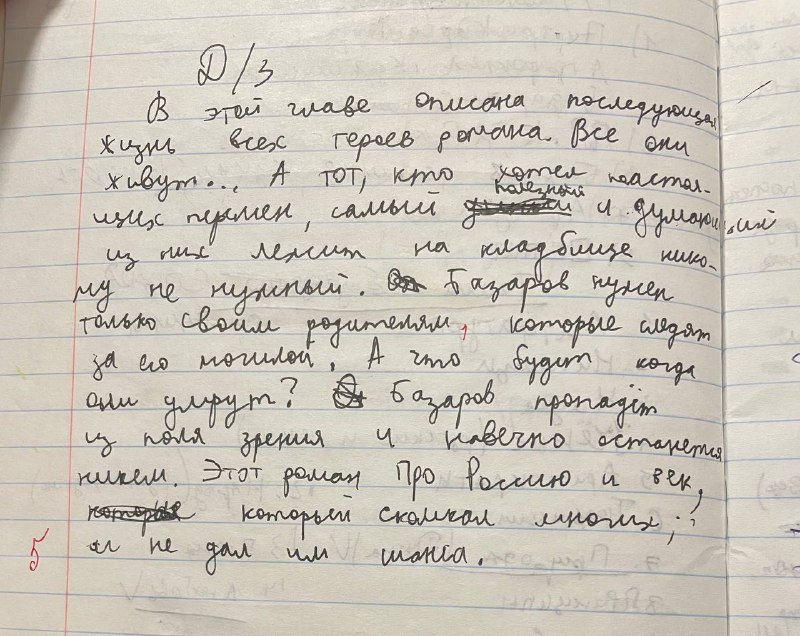 Д/З
В этой главе описана последующая
жизнь всех героев романа. Все они
живут... А тот, кто хотел настоя-
щих перемен, самый полезный и думающий
из них лежит на кладбище нико-
му не нужный. Базаров нужен
только своим родителям, которые следят
за его могилой. А что будет когда
они умрут? Базаров пропадёт
из поля зрения и навечно останется
никем. Этот роман про Россию и век,
который скомкал многих;
и не дал им шанса.
5